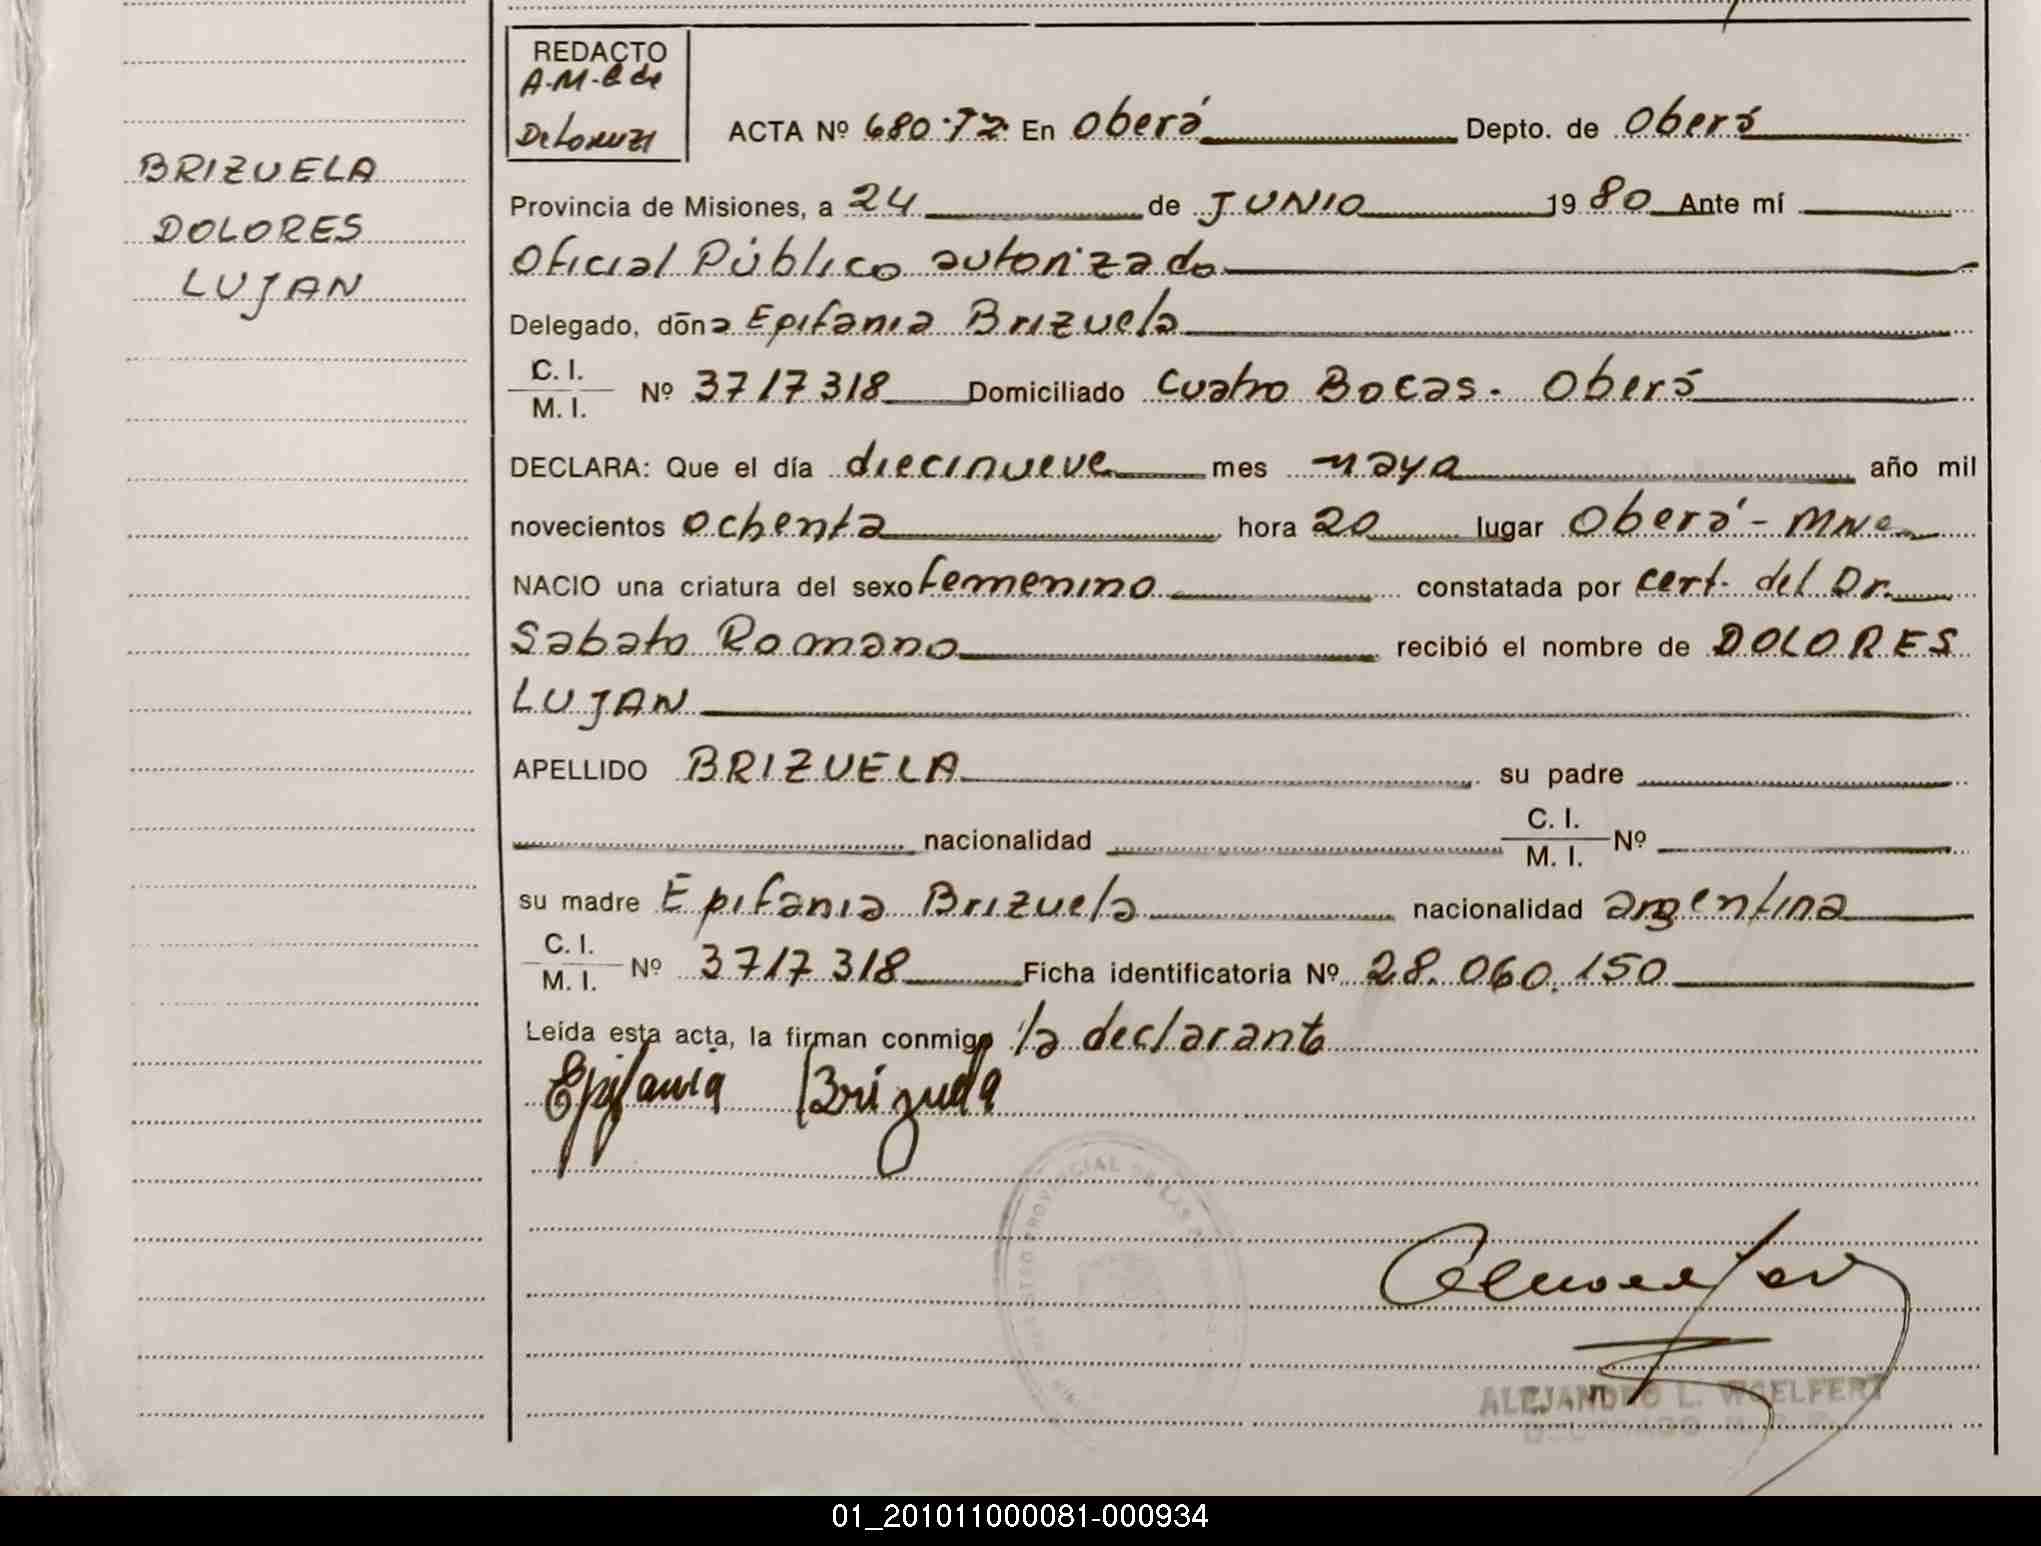 REDACTO
A-M-C de
De Lorenzi
ACTA Nº 680·72· En Oberá Depto. de Oberá
BRIZUELA
DOLORES
LUJAN
Provincia de Misiones, a 24 de JUNIO 1980 Ante mí
Oficial Público autorizado
Delegado, doña Epifania Brizuela
C. I.
M. I. Nº 3717318 Domiciliado Cuatro Bocas - Oberá
DECLARA: Que el día diecinueve mes mayo año mil
novecientos ochenta hora 20 lugar Oberá - Mnes
NACIO una criatura del sexo femenino constatada por cert. del Dr.
Sabato Romano recibió el nombre de DOLORES
LUJAN
APELLIDO BRIZUELA su padre
nacionalidad C. I.
M. I. Nº
su madre Epifania Brizuela nacionalidad argentina
C. I.
M. I. Nº 3717318 Ficha identificatoria Nº 28.060.150
Leída esta acta, la firman conmigo la declarante
Epifania Brizuela
PROVINCIAL DE LAS
ALEJANDRO L. WOELFERT
01_201011000081-000934